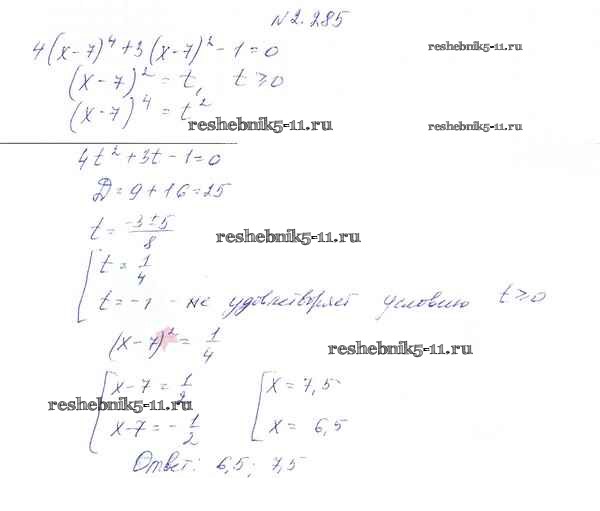 №2.285
4(x-7)⁴+3(x-7)²-1=0
reshebnik5-11.ru
(x-7)²=t, t≥0
(x-7)⁴=t²
reshebnik5-11.ru
reshebnik5-11.ru
4t²+3t-1=0
D=9+16=25
t=(-3±5)/8
reshebnik5-11.ru
[t=1/4
t=-1 - не удовлетворяет условию t≥0
(x-7)²=1/4
reshebnik5-11.ru
[x-7=1/2 [x=7,5
reshebnik5-11.ru
x-7=-1/2 x=6,5
Ответ: 6,5; 7,5